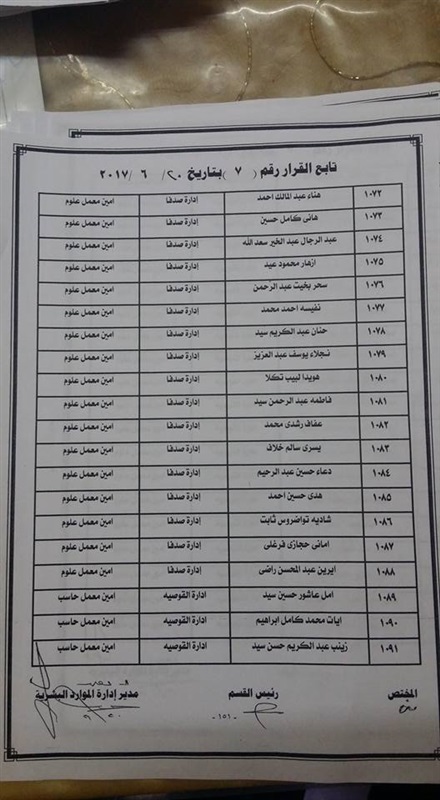 تابع القرار رقم ( ٧ ) بتاريخ ٢٠ / ٦ / ٢٠١٧
١٠٧٢ هناء عبد المالك احمد إدارة صدفا امين معمل علوم
١٠٧٣ هانى كامل حسين إدارة صدفا امين معمل علوم
١٠٧٤ عبد الرجال عبد الخير سعد الله إدارة صدفا امين معمل علوم
١٠٧٥ ازهار محمود عيد إدارة صدفا امين معمل علوم
١٠٧٦ سحر بخيت عبد الرحمن إدارة صدفا امين معمل علوم
١٠٧٧ نفيسه احمد محمد إدارة صدفا امين معمل علوم
١٠٧٨ حنان عبد الكريم سيد إدارة صدفا امين معمل علوم
١٠٧٩ نجلاء يوسف عبد العزيز إدارة صدفا امين معمل علوم
١٠٨٠ هويدا لبيب تكلا إدارة صدفا امين معمل علوم
١٠٨١ فاطمه عبد الرحمن سيد إدارة صدفا امين معمل علوم
١٠٨٢ عفاف رشدى محمد إدارة صدفا امين معمل علوم
١٠٨٣ يسرى سالم خلاف إدارة صدفا امين معمل علوم
١٠٨٤ دعاء حسين عبد الرحيم إدارة صدفا امين معمل علوم
١٠٨٥ هدى حسين احمد إدارة صدفا امين معمل علوم
١٠٨٦ شاديه تواضروس ثابت إدارة صدفا امين معمل علوم
١٠٨٧ امانى حجازى فرغلى إدارة صدفا امين معمل علوم
١٠٨٨ ايرين عبد المحسن راضى إدارة صدفا امين معمل علوم
١٠٨٩ امل عاشور حسين سيد ادارة القوصيه امين معمل حاسب
١٠٩٠ ايات محمد كامل ابراهيم ادارة القوصيه امين معمل حاسب
١٠٩١ زينب عبد الكريم حسن سيد ادارة القوصيه امين معمل حاسب
المختص رئيس القسم مدير إدارة الموارد البشرية
-١٥١-